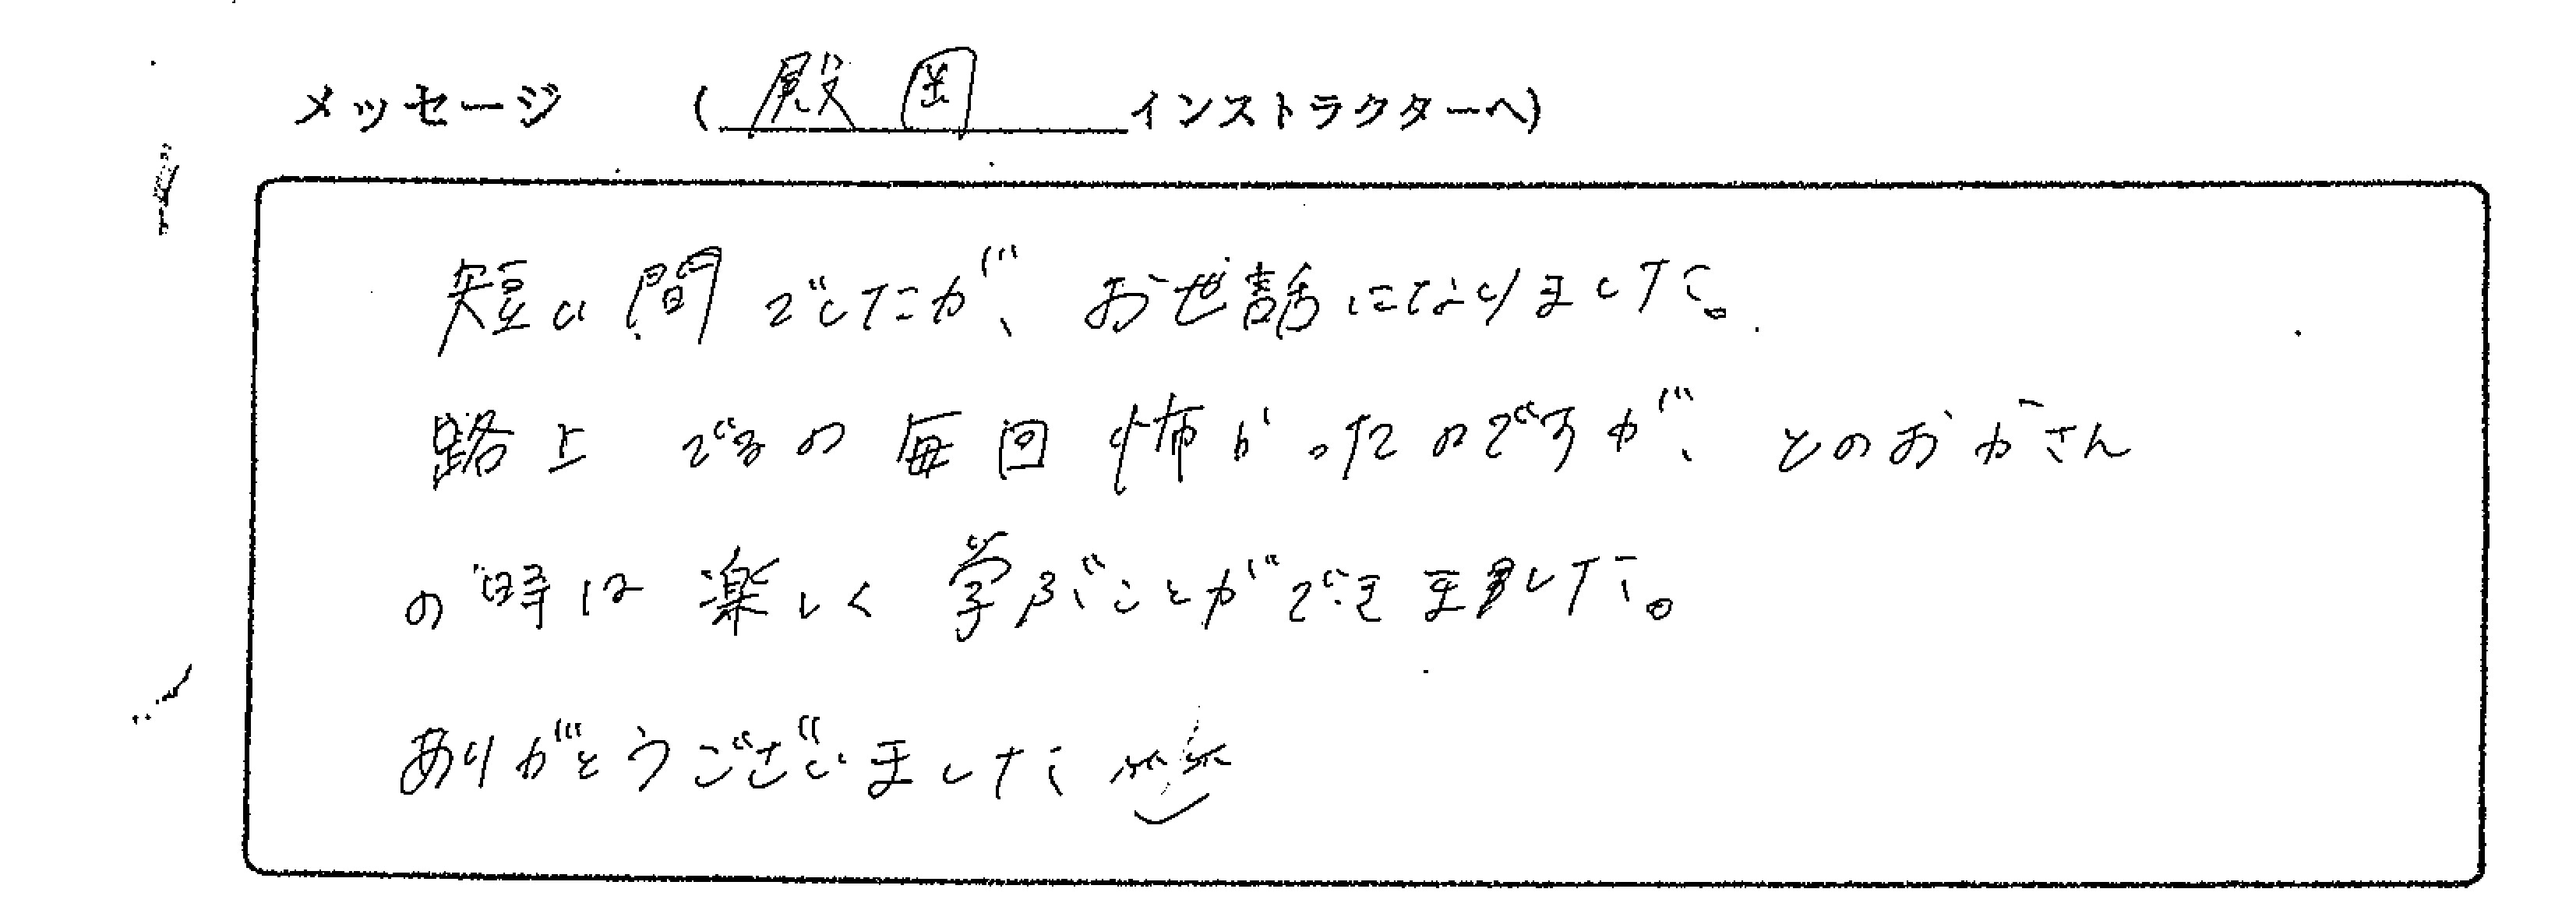 メッセージ (殿岡インストラクターへ)
短い間でしたが、お世話になりました。
路上でるの毎回怖かったのですが、とのおかさん
の時は楽しく学ぶことができました。
ありがとうございました